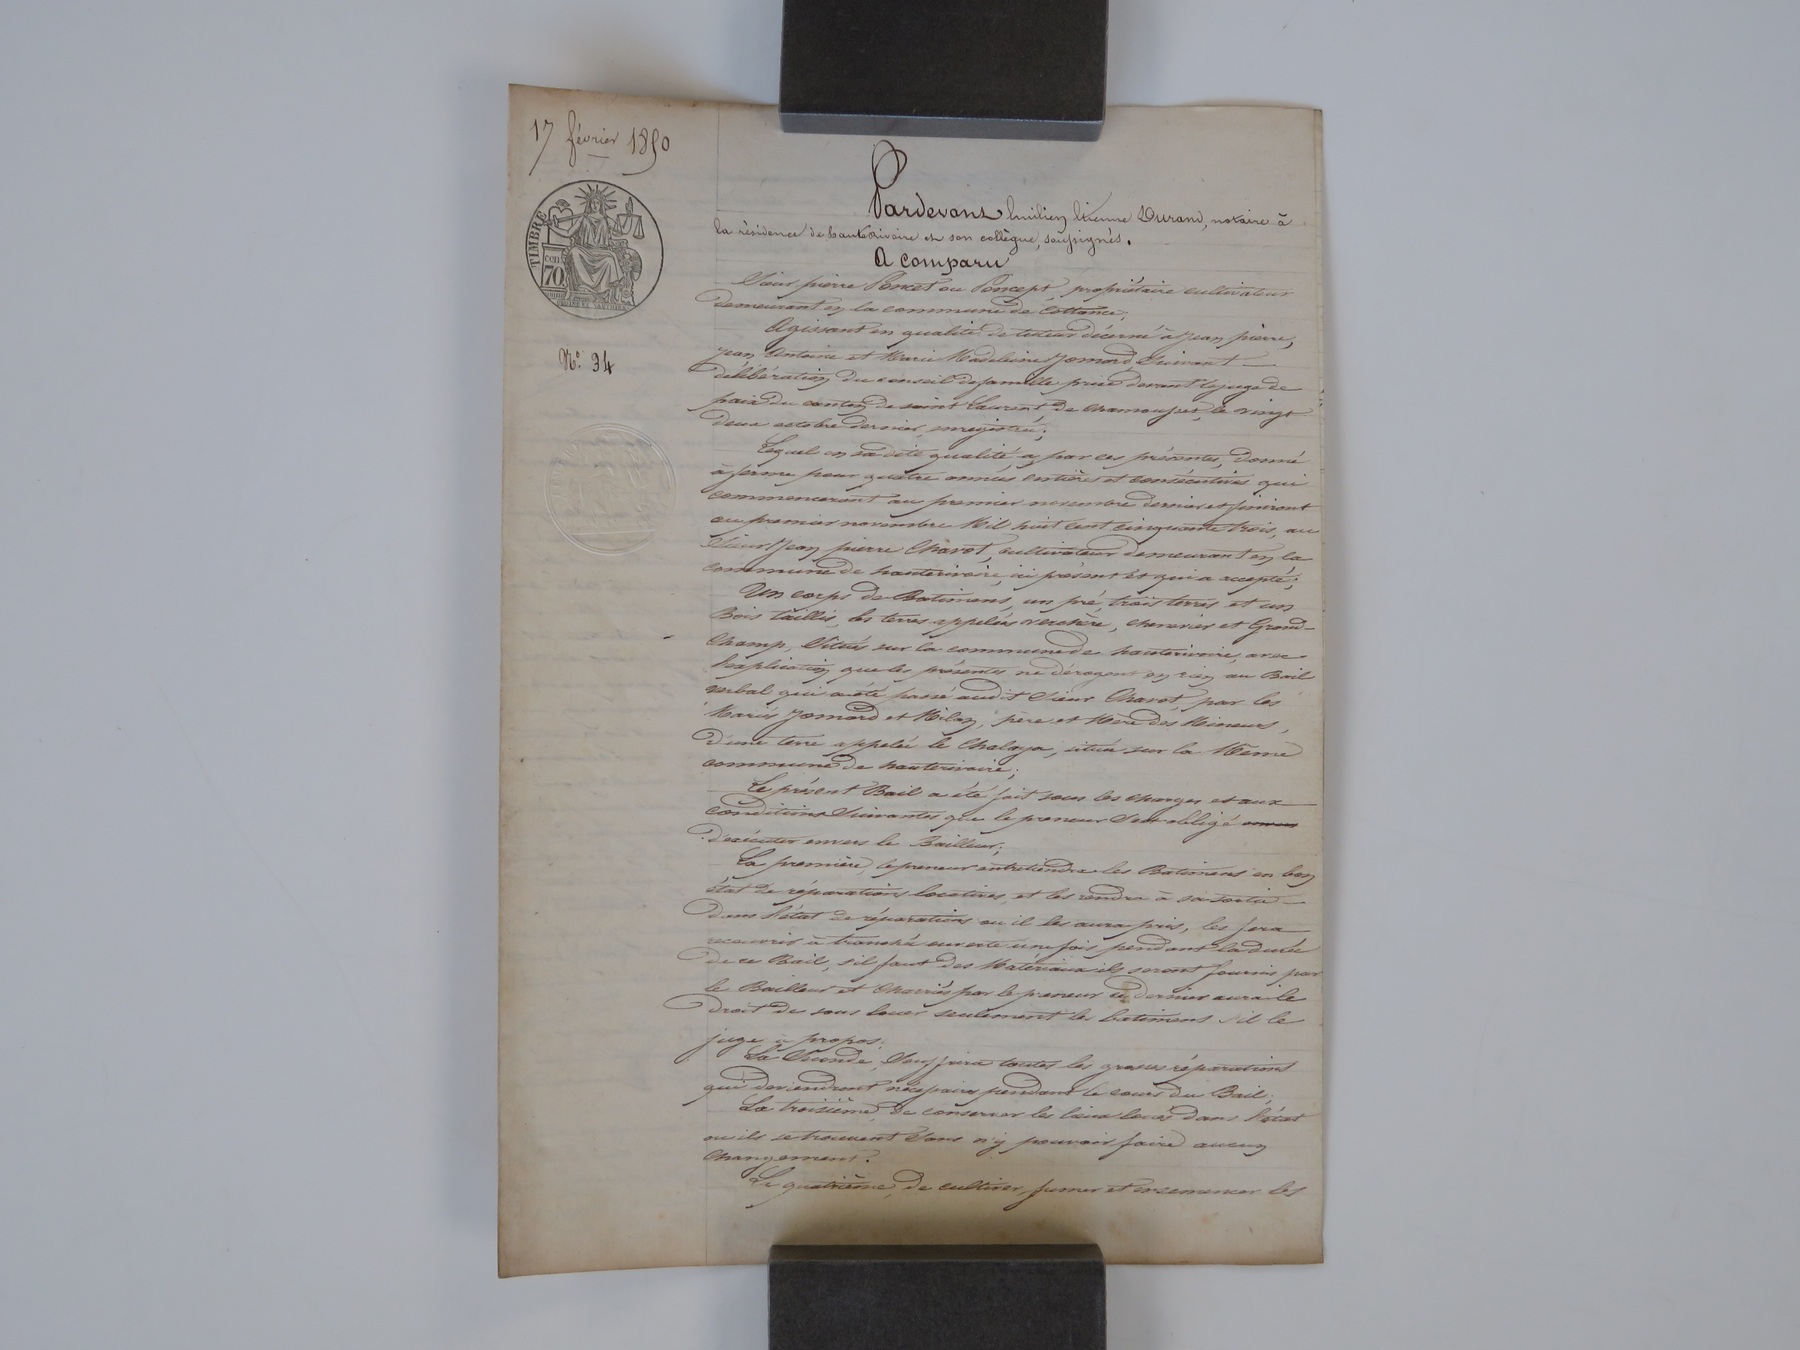 17 février 1850
TIMBRE
70
N° 34
Pardevant Emilien Etienne Durand, notaire à
la résidence de hauterivoire et son collègue, soussignés.
A comparu
Sieur pierre Poncet ou Poncept, propriétaire cultivateur
demeurant en la commune de Cottance;
Agissant en qualité de tuteur décerné à Jean pierre,
Jean Antoine et Marie Madeleine Jomard, Suivant
délibération du conseil de famille prise devant le juge de
paix du canton de saint Laurent de Chamousset, le vingt
deux octobre dernier, enregistré;
Lequel en sa dite qualité a par ces présentes, donné
à ferme pour quatre années entières et consécutives qui
commenceront au premier novembre dernier et finiront
au premier novembre Mil huit cent cinquante trois, au
Sieur Jean pierre Chavot, cultivateur demeurant en la
commune de hauterivoire, ici présent et qui a accepté;
Un corps de Batimens, un pré, trois terres et un
Bois taillis, les terres appelées verchère, et Grand-
Champ, Situés sur la commune de hauterivoire, avec
l'explication que les présentes ne dérogent en rien au Bail
verbal qui a été passé audit Sieur Chavot, par les
Mariés Jomard et Milan, père et Mère des Mineurs,
d'une terre appelée le Chalaya, située sur la Même
commune de hauterivoire;
Le présent Bail a été fait sous les charges et aux
conditions Suivantes que le preneur Sera obligé
d'exécuter envers le Bailleur;
La première, le preneur entretiendra les Batimens en bon
état de réparations locatives, et les rendra à sa sortie
dans l'état de réparations où il les aura pris, les fera
recouvrir à tranchée ouverte une fois pendant la durée
de ce Bail, s'il faut des Matériaux ils seront fournis par
le Bailleur et Charriés par le preneur ce dernier aura le
droit de sous louer seulement les batimens s'il le
juge à propos.
La Seconde, Souffrira toutes les grosses réparations
qui deviendront nécessaires pendant le cours du Bail;
La troisième, de conserver les lieux loués dans l'état
où ils se trouvent Sans n'y pouvoir faire aucun
Changement.
La quatrième, de cultiver, fumer et ensemencer les